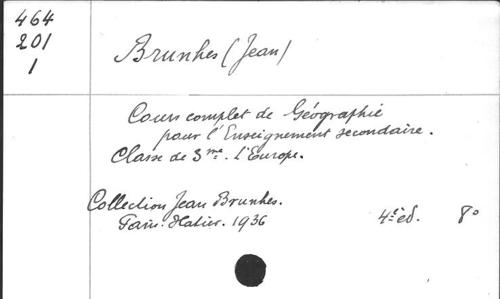 464
201
1
Brunhes (Jean)
Cours complet de Géographie
pour l'Enseignement secondaire.
Classe de 3me. L'Europe.
Collection Jean Brunhes.
Paris. Hatier. 1936 4e éd. 8°